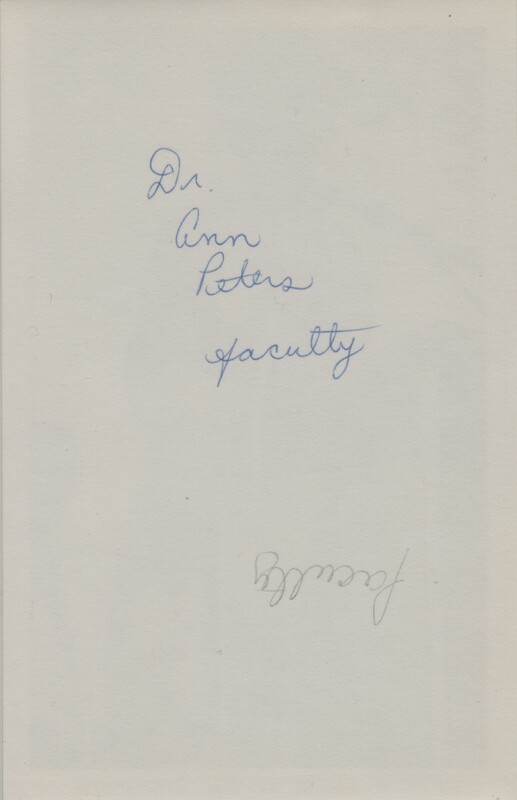 Dr.
Ann
Peters
faculty
faculty